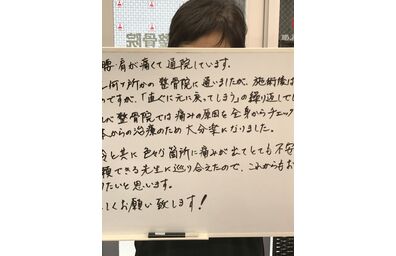 整骨院
腰・肩が痛くて通院しています。
何ヶ所かの整骨院に通いましたが、施術後は
ですが、「直ぐに元に戻ってしまう」の繰り返しで
整骨院では痛みの原因を全身からチェック
からの治療のため大分楽になりました。
と共に色々な箇所に痛みが出てとても不安
頼できる先生に巡り合えたので、これからもお
りたいと思います。
しくお願い致します!